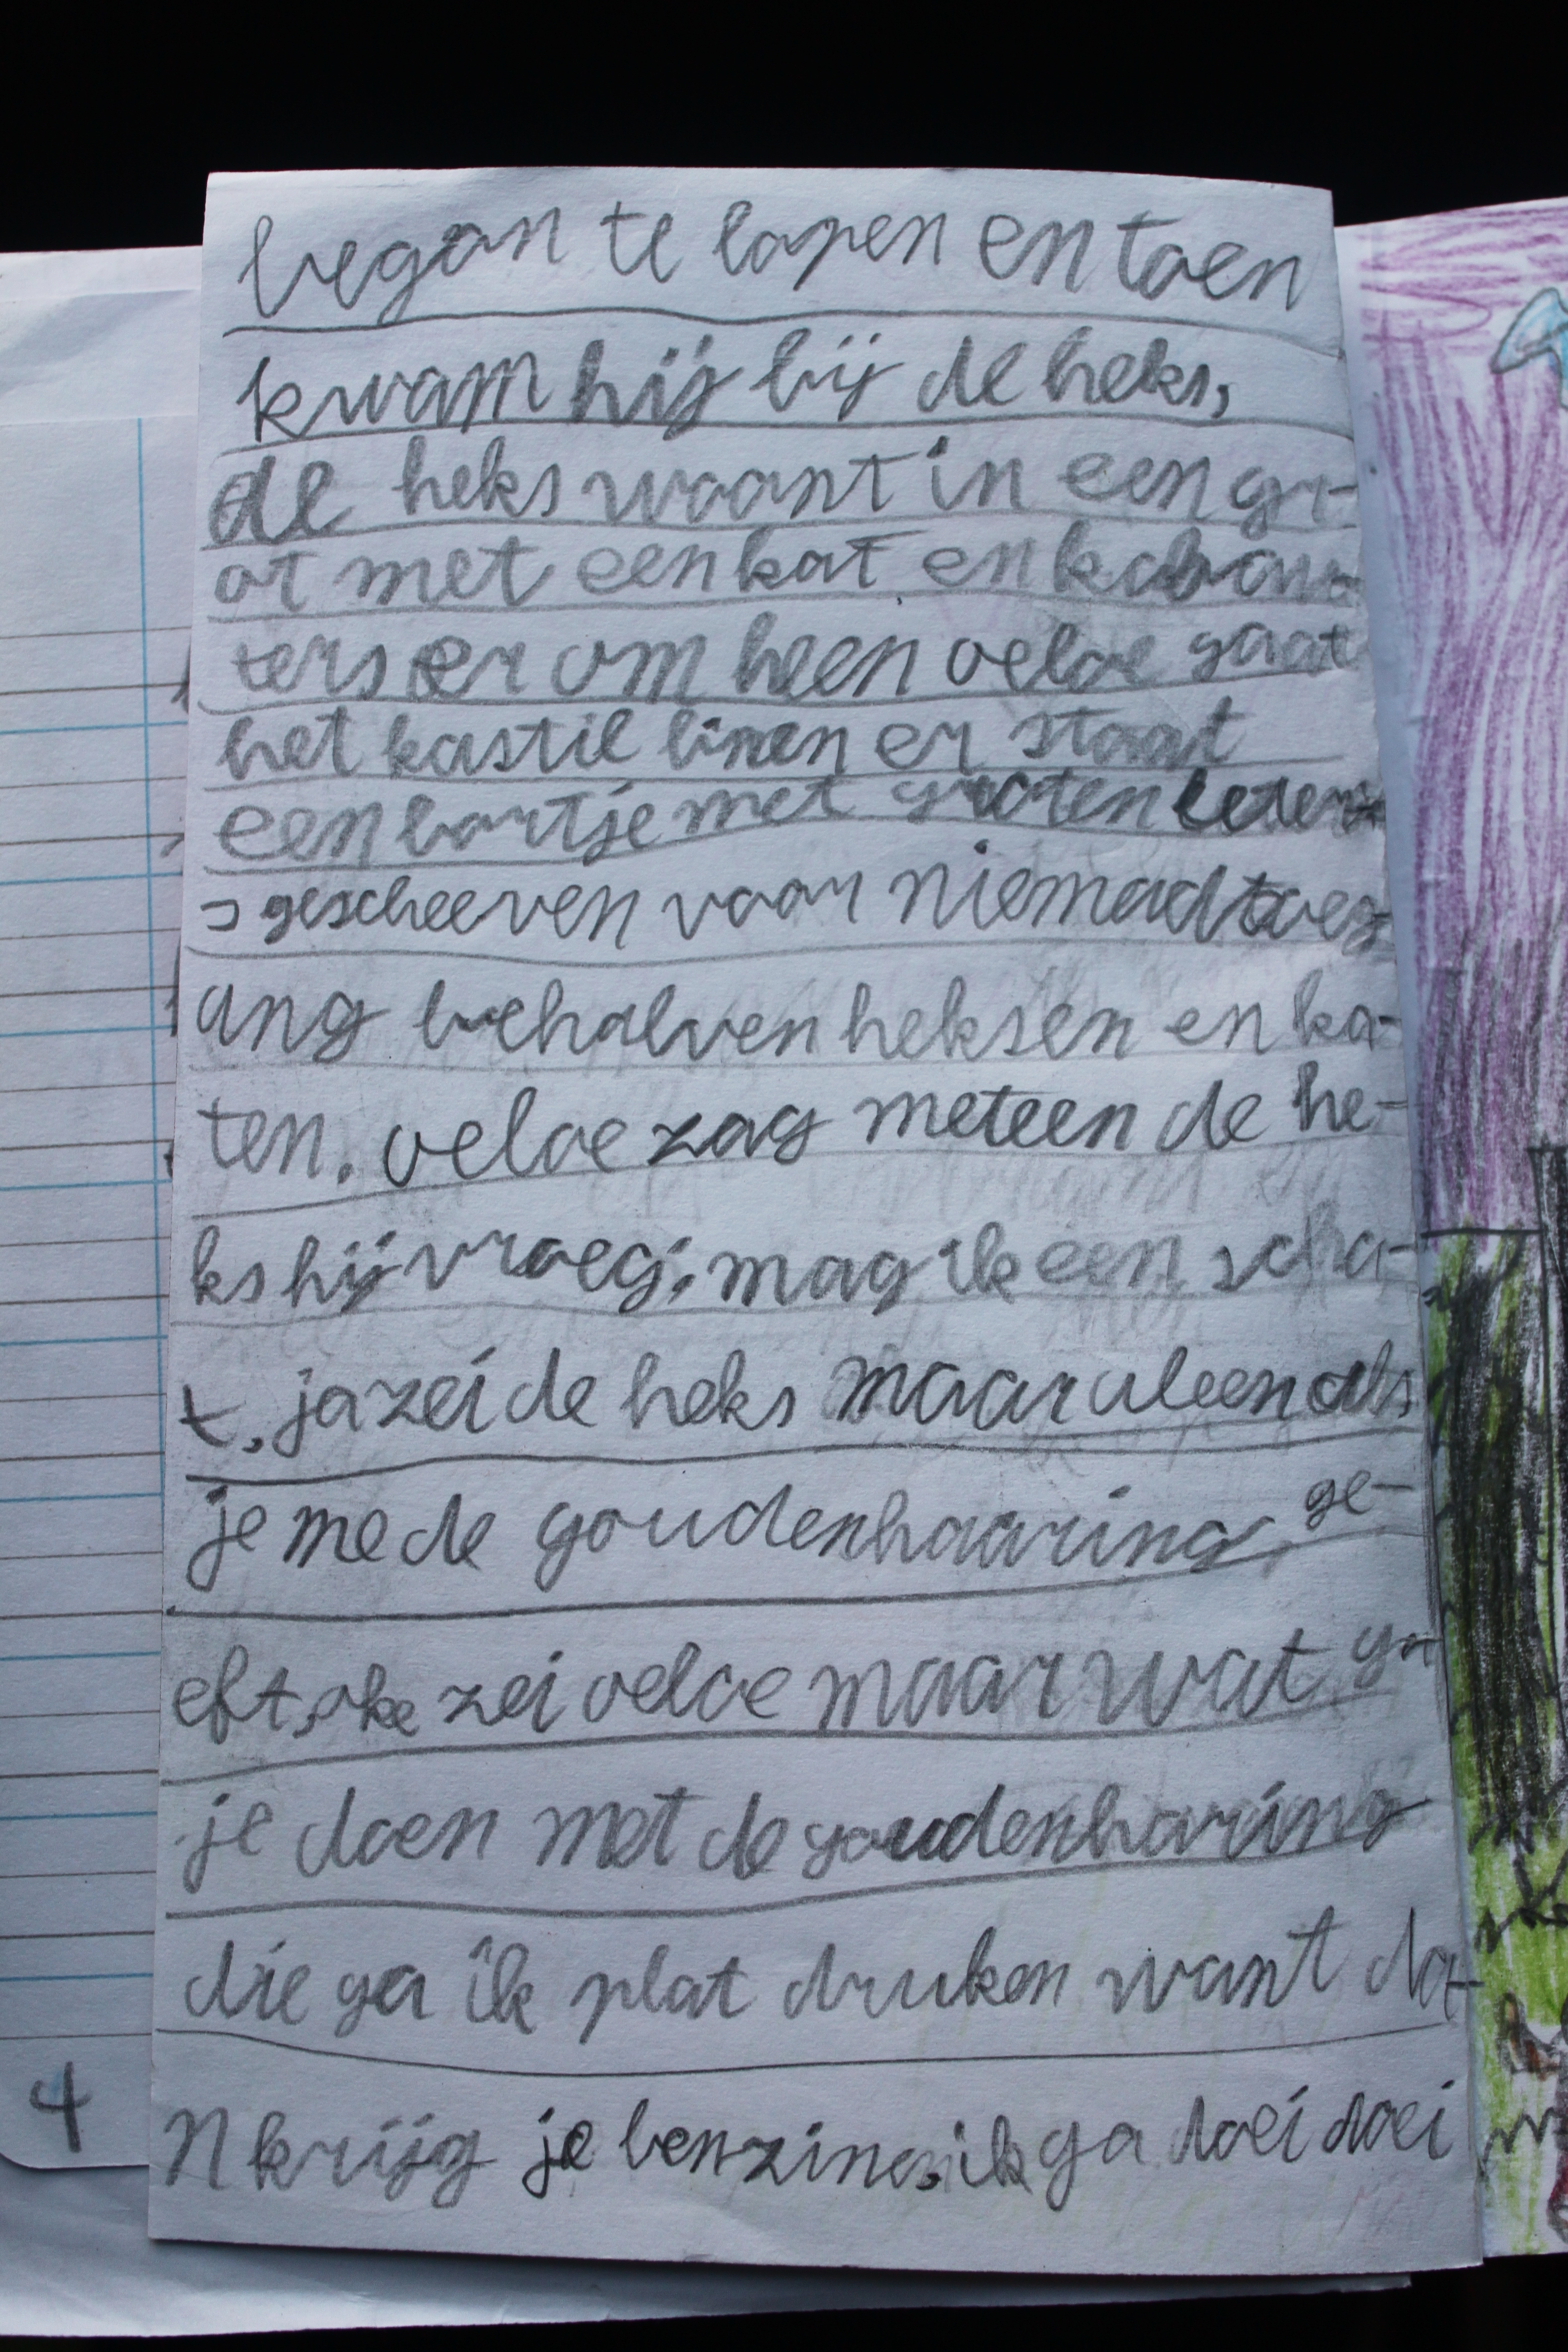 began te lopen en toen
kwam hij bij de heks,
de heks woont in een gr-
ot met een kat en kabou-
ters er om heen oeloe gaat
het kastil binen er staat
een bortje met groten leter-
s gescheeven voor niemad toeg-
ang behalven heksen en ka-
ten. oeloe zag meteen de he-
ks hij vroeg: mag ik een scha-
t, ja zei de heks maar aleen als
je me de goudenhaaring ge-
eft, oke zei oeloe maar wat ga
je doen met de goudenharing
die ga ik plat druken want da-
n krijg je benzine, ik ga doei doei
4